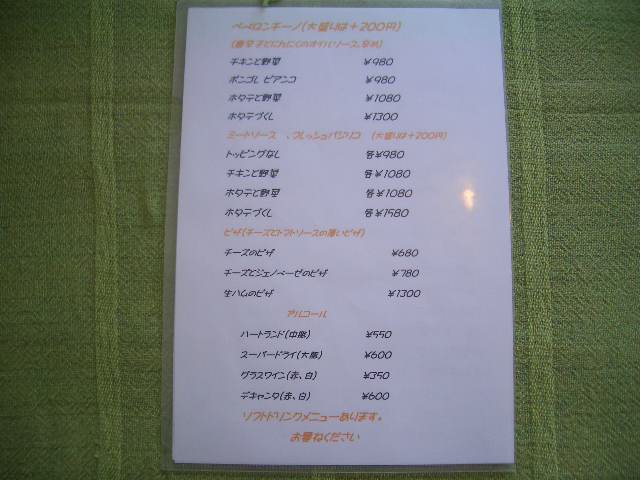 ペペロンチーノ(大盛りは+200円)
(唐辛子とにんにくのオイルソース、辛め)
チキンと野菜 ¥980
ボンゴレ ビアンコ ¥980
ホタテと野菜 ¥1080
ホタテづくし ¥1300
ミートソース 、フレッシュバジリコ (大盛りは+200円)
トッピングなし 各¥980
チキンと野菜 各¥1080
ホタテと野菜 各¥1080
ホタテづくし 各¥1580
ピザ(チーズとトマトソースの薄いピザ)
チーズのピザ ¥680
チーズとジェノベーゼのピザ ¥780
生ハムのピザ ¥1300
アルコール
ハートランド(中瓶) ¥550
スーパードライ(大瓶) ¥600
グラスワイン(赤、白) ¥350
デキャンタ(赤、白) ¥600
ソフトドリンクメニューあります。
お尋ねください